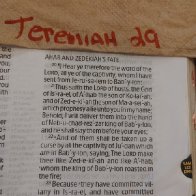 Jeremiah 29
AHAB AND ZEDEKIAH'S FATE
20 Hear ye therefore the word of the
LORD, all ye of the captivity, whom I have
sent from Je-ru-sa-lem to Bab-y-lon:
21 Thus saith the LORD of hosts, the God
of Is-ra-el, of A-hab the son of Ko-lai-ah,
and of Zed-e-ki-ah the son of Ma-a-se-iah,
which prophesy a lie unto you in my name;
Behold, I will deliver them into the hand
of Neb-u-chad-rez-zar king of Bab-y-lon;
and he shall slay them before your eyes;
22 And of them shall be taken up a
curse by all the captivity of Ju-dah which
are in Bab-y-lon, saying, The LORD make
thee like Zed-e-ki-ah and like A-hab,
whom the king of Bab-y-lon roasted in
the fire;
23 Because they have committed vil-
lany in Is-ra-el, and have committed